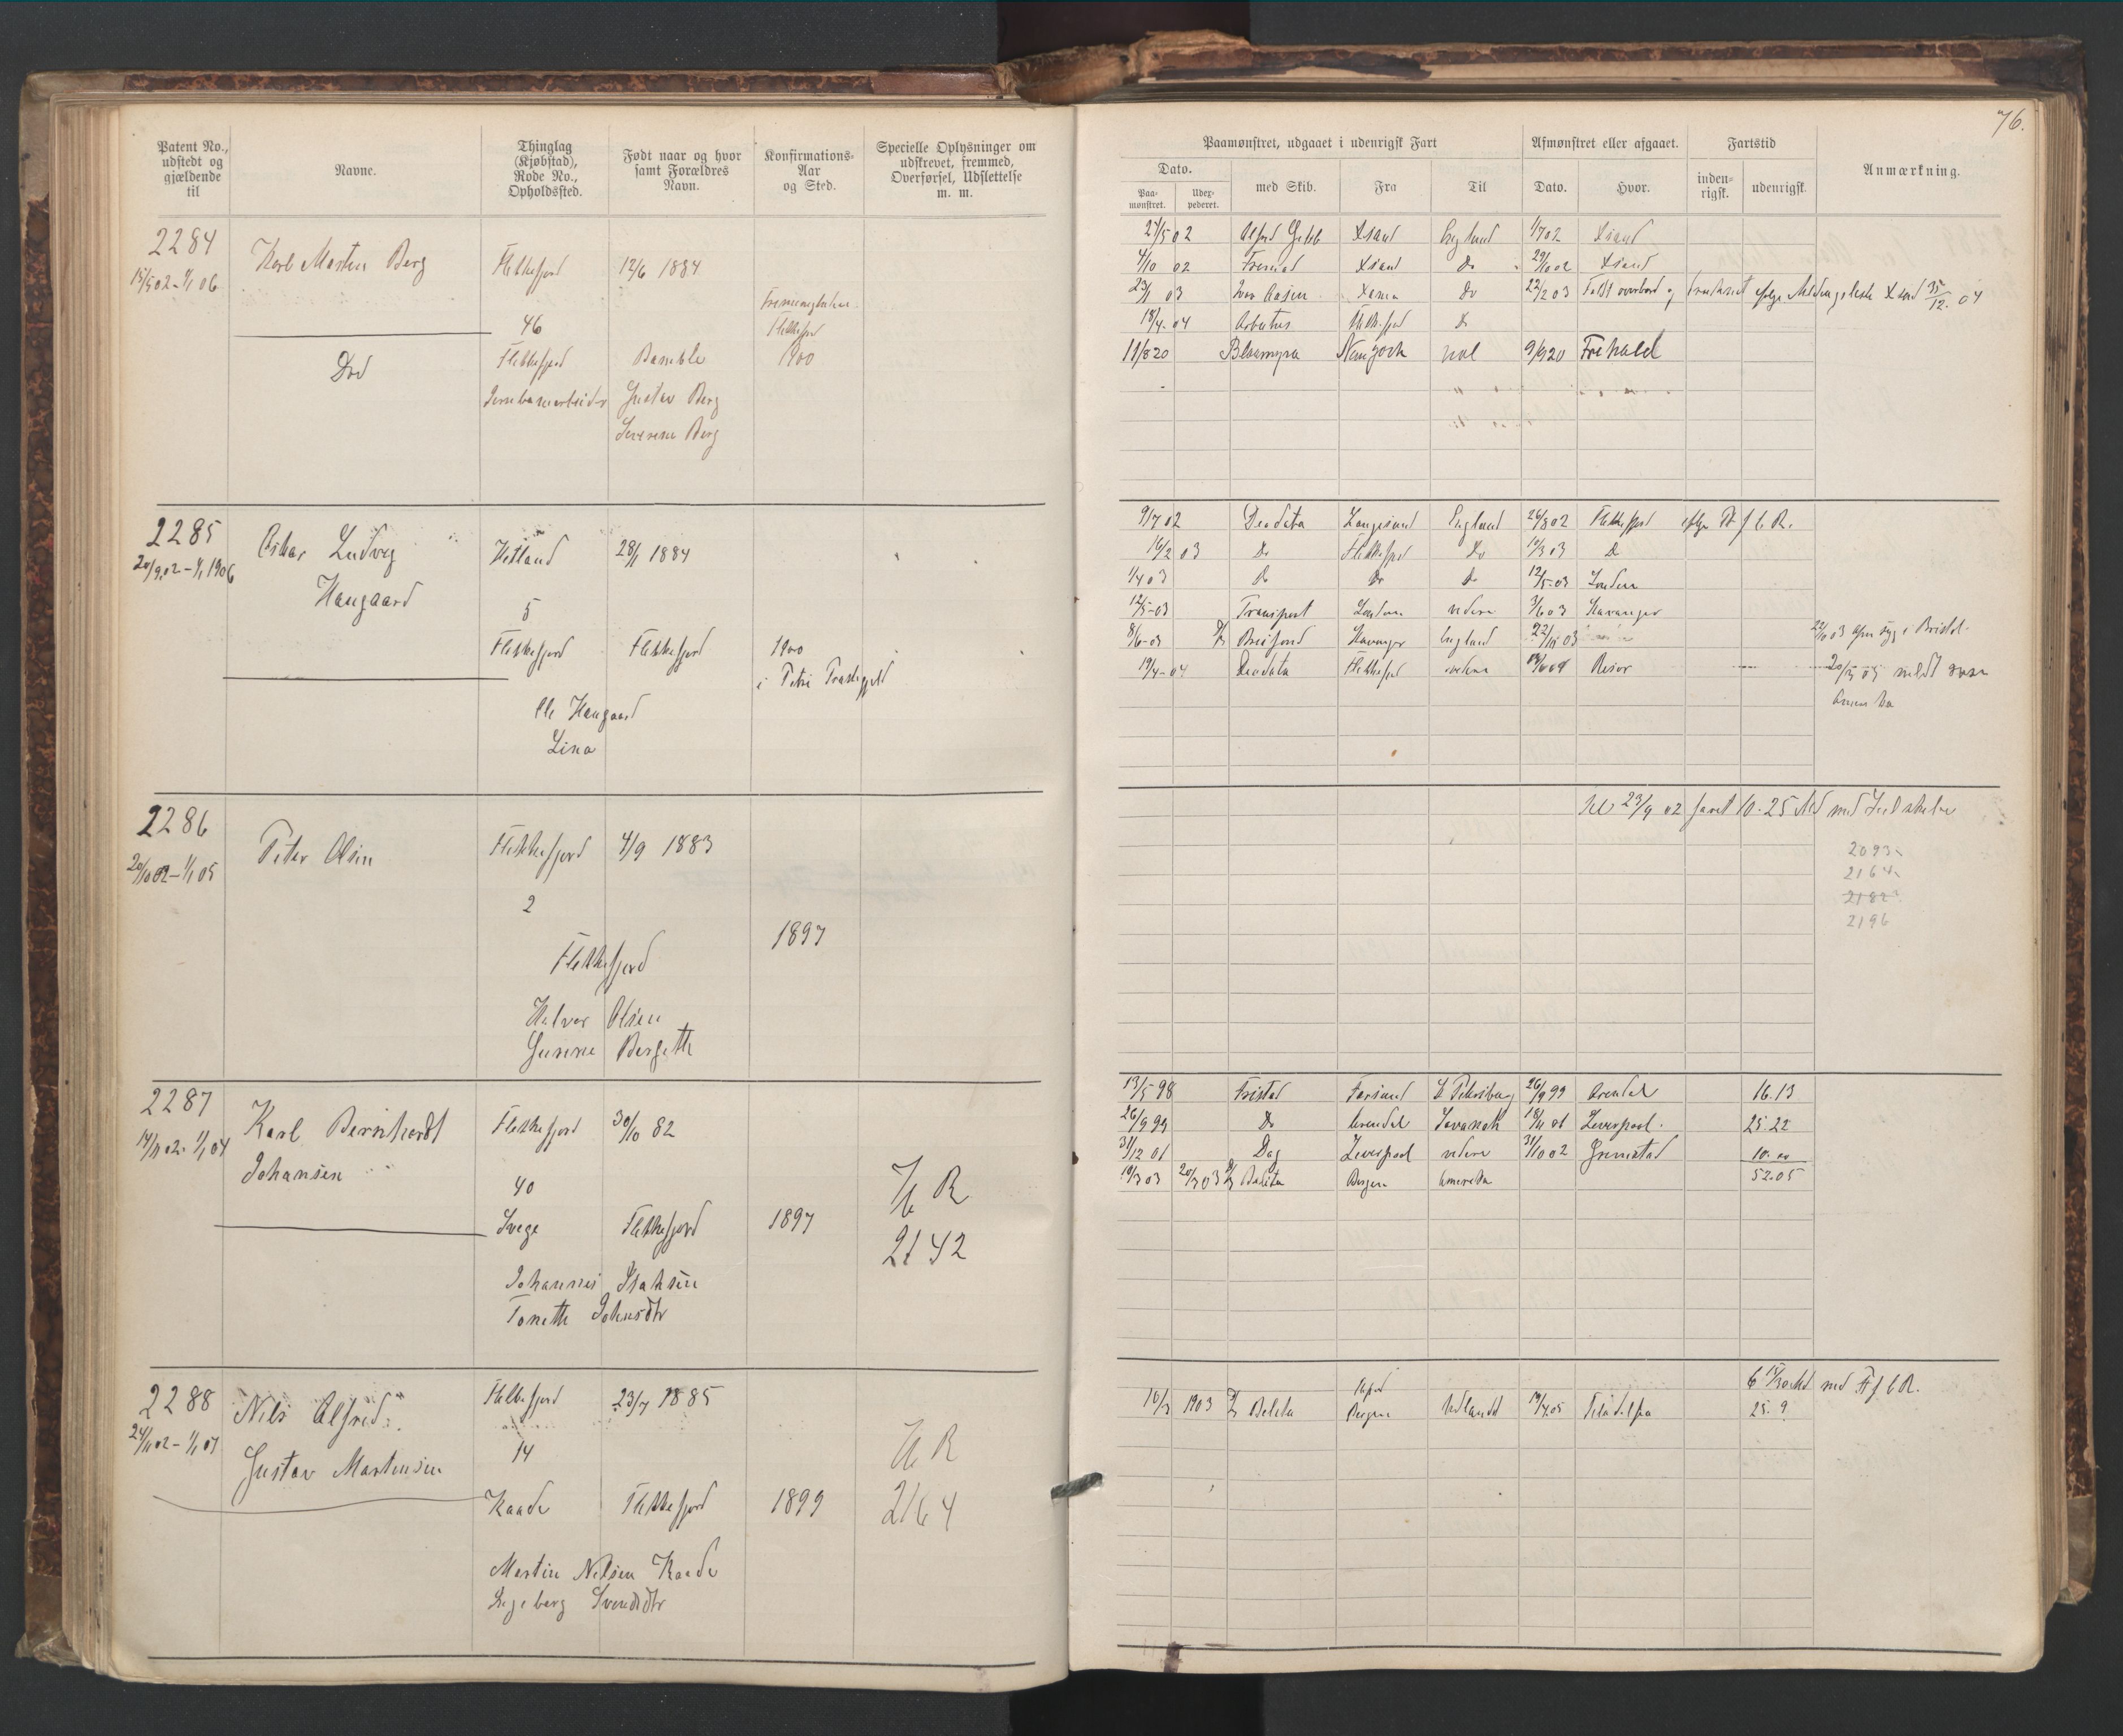 76.
Patent No., udstedt og gjældende til
Navne.
Thinglag (Kjøbstad), Rode No., Opholdssted.
Født naar og hvor samt Forældres Navn.
Konfirmations-Aar og Sted.
Specielle Oplysninger om udskrevet, fremmed, Overførsel, Udslettelse m. m.
Paamønstret, udgaaet i udenrigsk Fart
Afmønstret eller afgaaet.
Fartstid
Anmærkning.
Dato.
med Skib.
Fra
Til
Dato.
Hvor.
inden-rigsk.
udenrigsk.
Paa-mønstret.
Udex-pederet.
2284
15/5 02 - 1/1 06
Karl Martin Berg
Flekkefjord
12/6 1884
46
Flekkefjord
1900
Død
Flekkefjord
Bamble
Jernbanearbeider
Gustav Berg
Severine Berg
27/5 02
Xsand
England
1/7 02
Xsand
4/10 02
Fremad
Xsand
Do
29/10 02
Xsand
23/1 03
Ivar Aasen
Do
22/2 03
Faldt overbord og druknet efølge Meldingsliste Xsand 35/12. 04
18/4 04
Arbutus
Do
11/8 20
Newyork
9/9 20
Frhald
2285
20/9 02 - 1/1 1906
Oskar Ludvig
Haugaard
Hetland
28/1 1884
5
Flekkefjord
Flekkefjord
1900
i Petri Præstegjeld
Ole Haugaard
Lina
9/7 02
Deodata
Langesund
England
26/8 02
Flekkefjord
efølge
16/2 03
Do
Flekkefjord
Do
10/3 03
Do
1/4 03
Do
Do
Do
12/5-03
London
12/5-03
Transport
London
videre
3/6 03
Stavanger
8/6-03
Stavanger
England
22/11 03
22/11 03 afm syg i Bristol.
19/4-04
Deodata
Flekkefjord
videre
Risør
20/3 05 meldt reise
Amerika
2286
20/10 02 - 1/1 05
Peter Olsen
Flekkefjord
4/9 1883
2
Flekkefjord
1897
Halvor Olsen
Gunne Bergethe
23/9 02 faret 10.25 Md med
2093
2164
2182
2196
2287
14/11 02 - 1/1 04
Karl Bernhardt
Johansen
Flekkefjord
30/10 82
40
Svege
Flekkefjord
1897
Johannes Isaksen
Tonethe Johnsdtr
R
2142
13/5 98
Tristad
Farsund
St Petersburg
26/9 99
Arendal
16.13
26/9 99
Do
Arendal
Savanah
18/11 01
Liverpool
25.22
31/12 01
Dag
Liverpool
videre
31/10 02
Grimstad
10.00
52.05
10/3 03
20/3 03
Bergen
Amerika
2288
24/11 02 - 1/1 07
Nils Alfred
Gustav Martinsen
Flekkefjord
23/7 1885
14
Kaade
Flekkefjord
1899
Martin Nilsen Kaade
Ingeborg Svendsdtr
R
2164
10/3
1903
Bergen
Udlandet
19/4.05
Filadelfia
25.9